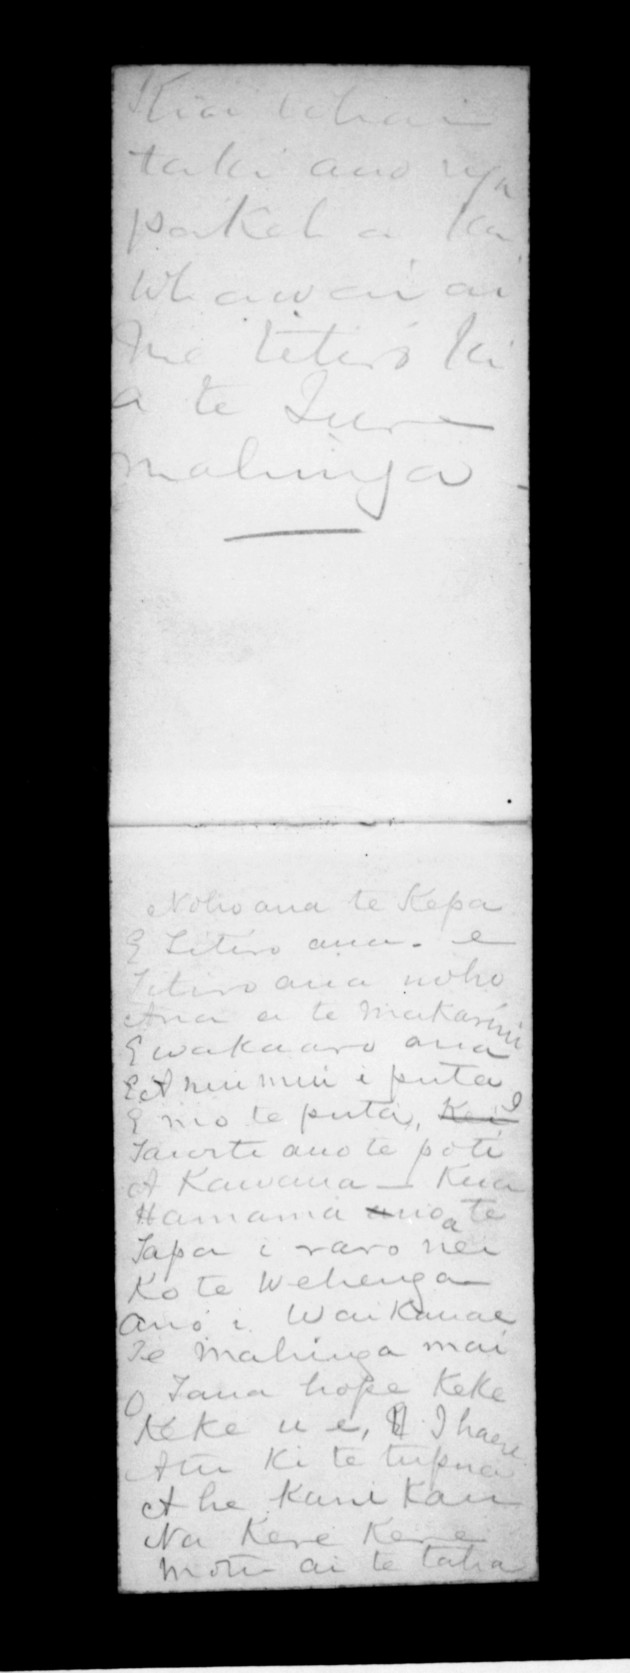 Kia 
taki ano nga
pakeh a ka
Whawai ai
Me titiro ki
a te
mahinga -
Noho ana te Kepa
E Titiro ana. e
Titiro ana noho
Ana a te Makarini
E wakaaro ana
E A miu miu i puta
E mo te puta, I
Taiorti ano te poti
A Kawana — Kua
Hamama noa te
Tapa i raro nei
Ko te Wehenga
Ano i Waikanae
Te Mahinga mai
O Tana hope Keke
Keke u e, I haere
Atu Ki te tupua
A he Kani Kau
Na Kere Kere
Motu ai te taha